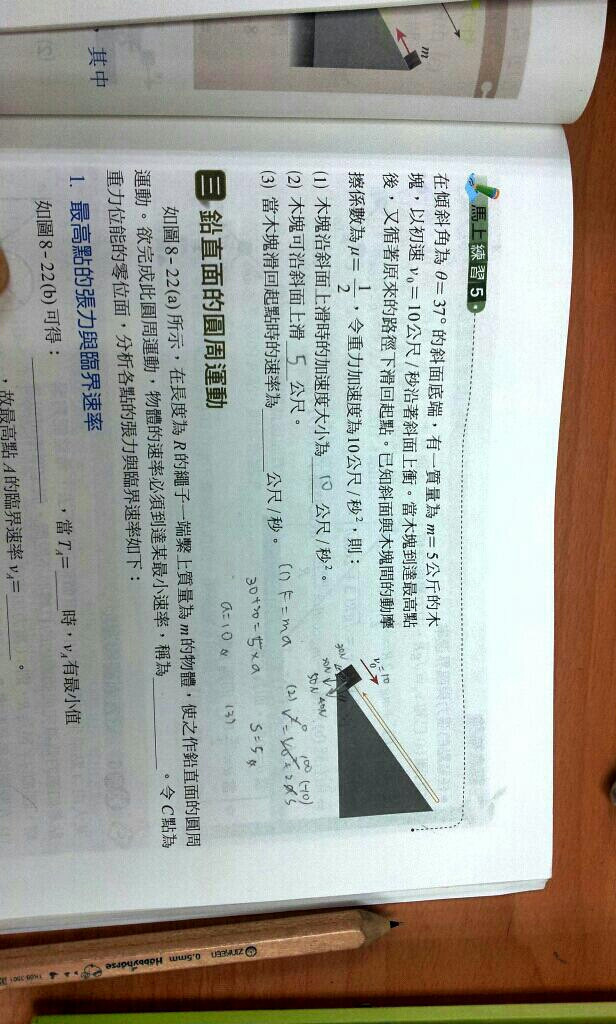 m
，其中
馬上練習 5
在傾斜角為 θ=37° 的斜面底端，有一質量為 m=5公斤的木
塊，以初速 v₀=10公尺/秒沿著斜面上衝。當木塊到達最高點
後，又循著原來的路徑下滑回起點。已知斜面與木塊間的動摩
擦係數為 μ=1/2，令重力加速度為10公尺/秒²，則：
(1) 木塊沿斜面上滑時的加速度大小為 10 公尺/秒²。
(2) 木塊可沿斜面上滑 5 公尺。
(3) 當木塊滑回起點時的速率為____公尺/秒。
v₀=10
30N
50N 40N
(1) F=ma
30+20=5×a
a=10
(2) v²=v₀²+2as
0 100 (-10)
s=5
(3)
三 鉛直面的圓周運動
如圖8-22(a)所示，在長度為 R 的繩子一端繫上質量為 m 的物體，使之作鉛直面的圓周
運動。欲完成此圓周運動，物體的速率必須到達某最小速率，稱為____。令 C 點為
重力位能的零位面，分析各點的張力與臨界速率如下：
1. 最高點的張力與臨界速率
如圖8-22(b)可得：____，當 T_A=____時，v_A 有最小值
，故最高點 A 的臨界速率 v_A=____。
ZINREEN 0.5mm Hobbyhorse